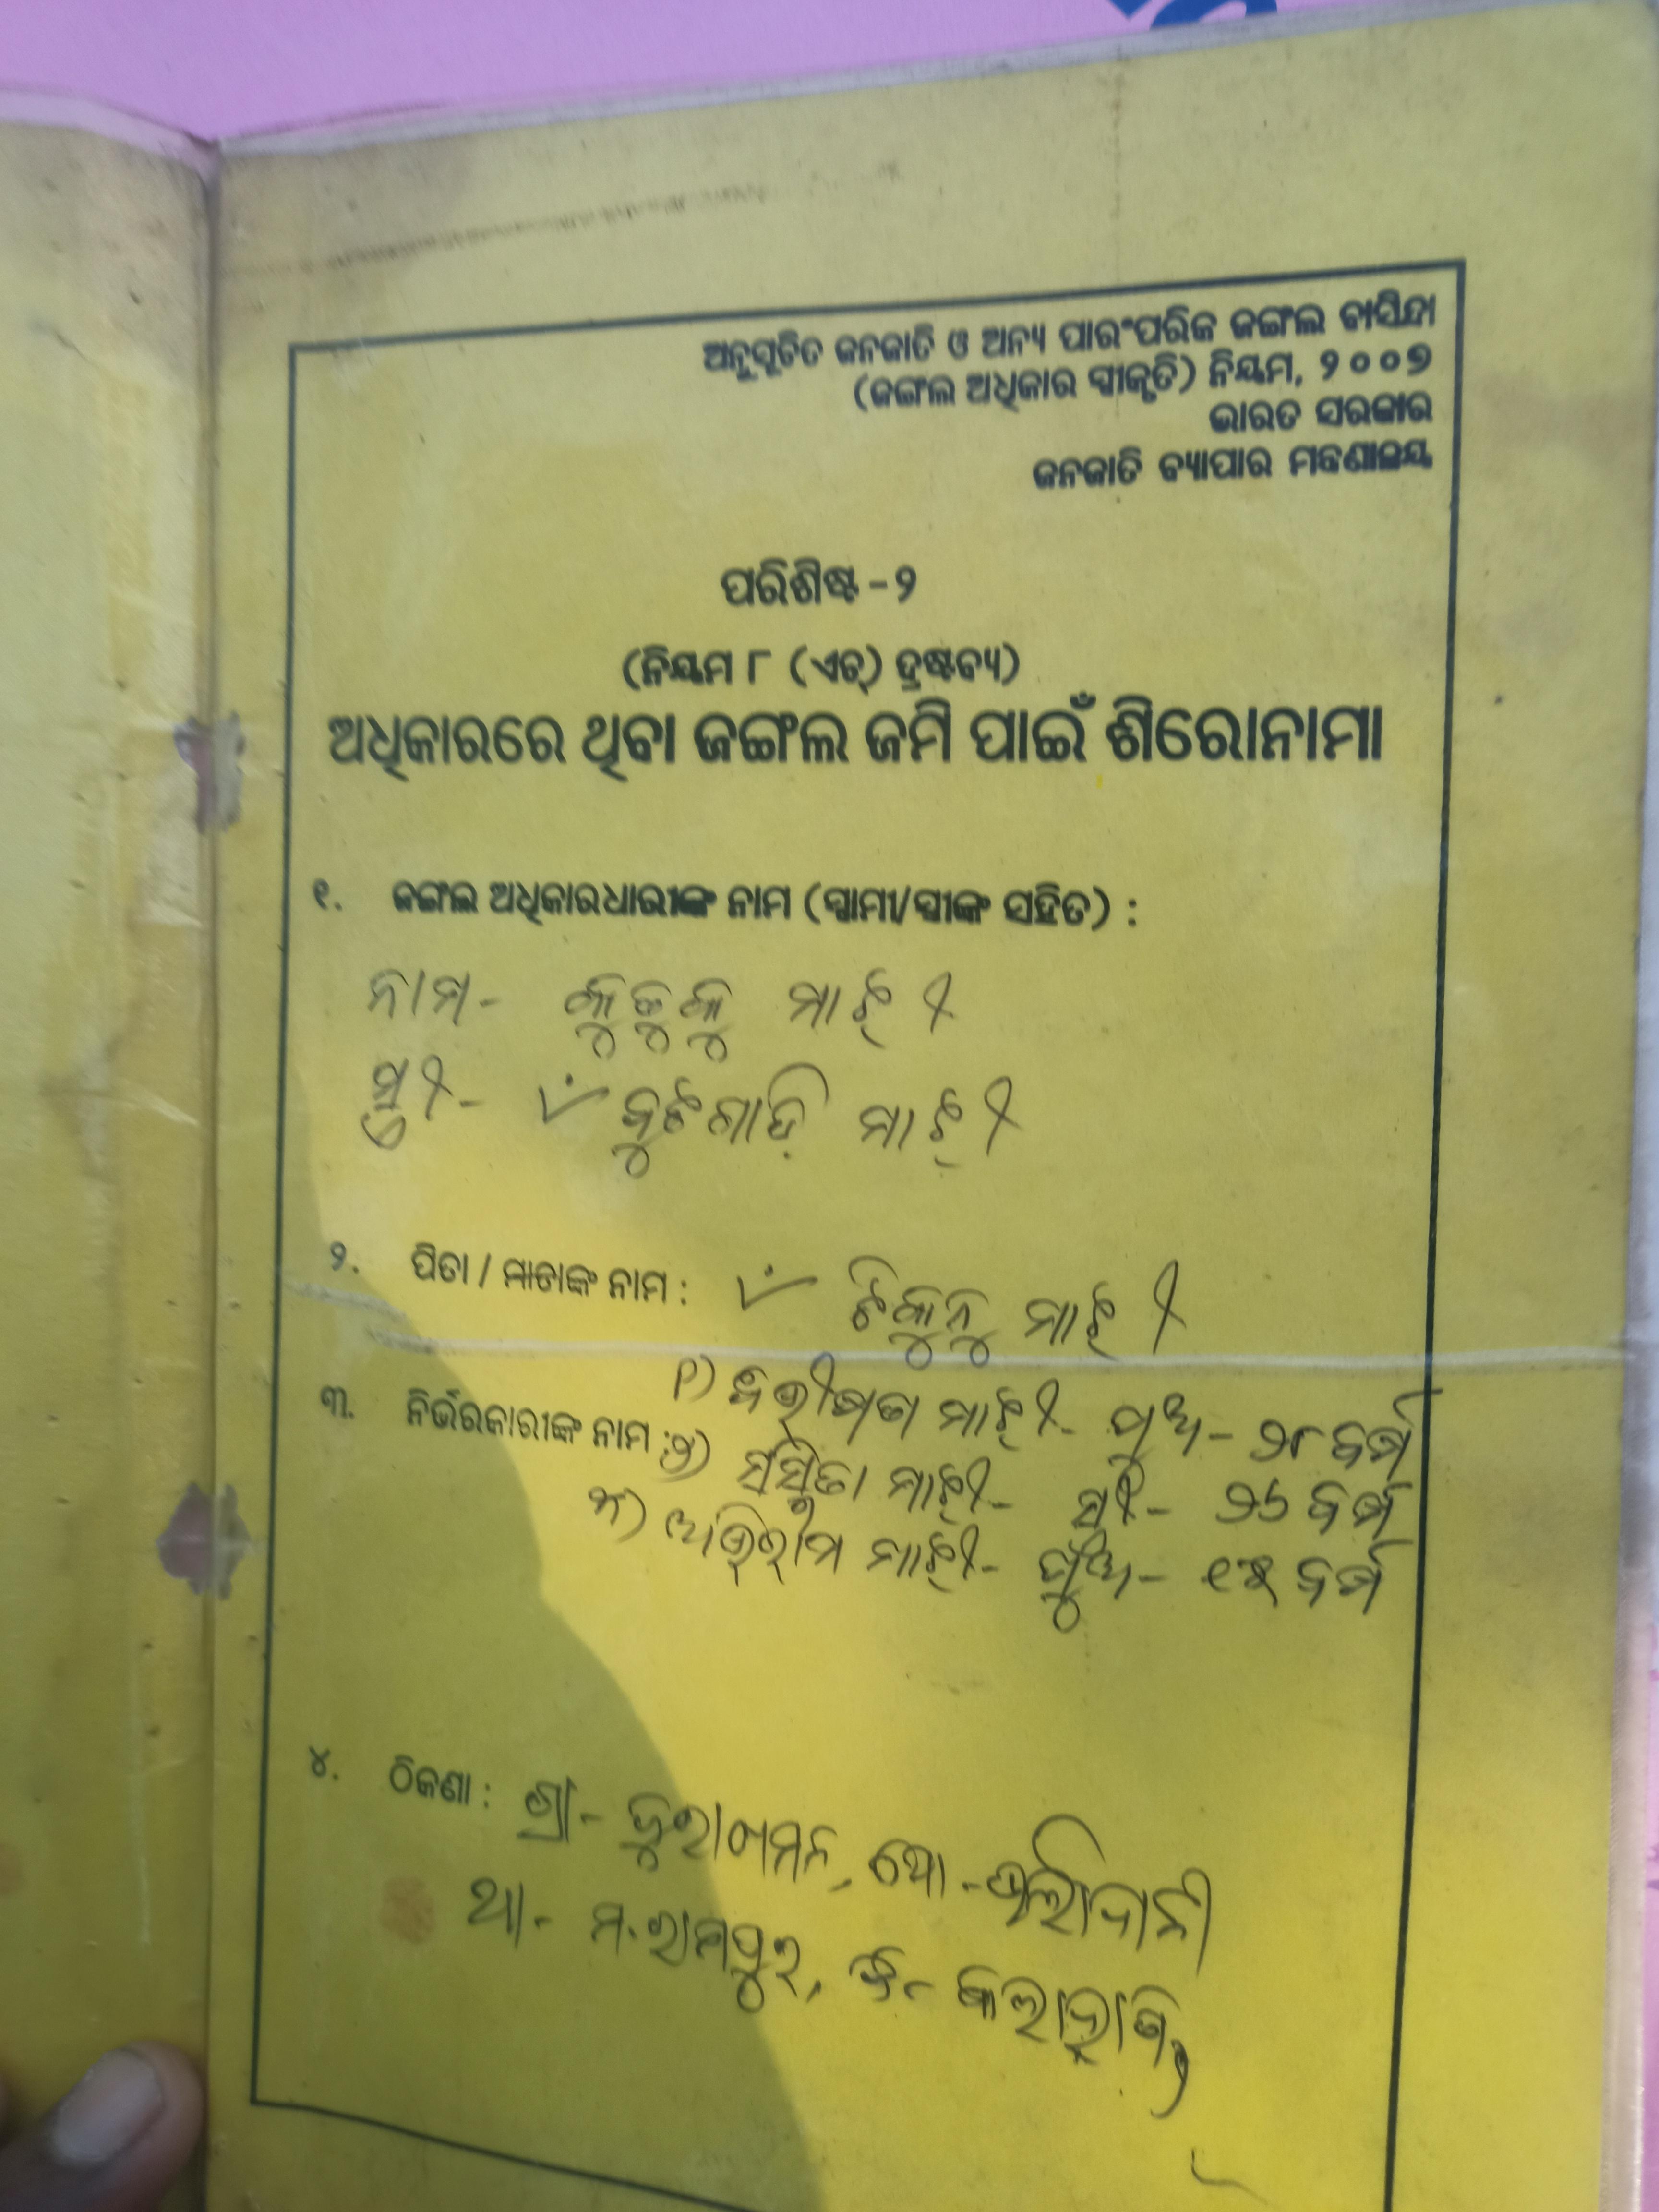 ଅନୁସୂଚିତ ଜନଜାତି ଓ ଅନ୍ୟ ପାରଂପରିକ ଜଙ୍ଗଲ ବାସିନ୍ଦା
(ଜଙ୍ଗଲ ଅଧିକାର ସ୍ୱୀକୃତି) ନିୟମ, ୨୦୦୭
ଭାରତ ସରକାର
ଜନଜାତି ବ୍ୟାପାର ମନ୍ତ୍ରଣାଳୟ
ପରିଶିଷ୍ଟ - ୨
(ନିୟମ ୮ (ଏଚ୍) ଦ୍ରଷ୍ଟବ୍ୟ)
ଅଧିକାରରେ ଥିବା ଜଙ୍ଗଲ ଜମି ପାଇଁ ଶିରୋନାମା
୧. ଜଙ୍ଗଲ ଅଧିକାରଧାରୀଙ୍କ ନାମ (ସ୍ୱାମୀ/ସ୍ତ୍ରୀଙ୍କ ସହିତ) :
ନାମ- କୁଡୁକୁ ମାଝୀ
ସ୍ତ୍ରୀ- ମାଝୀ
୨. ପିତା / ମାତାଙ୍କ ନାମ : ଟିକୁନୁ ମାଝୀ
୩. ନିର୍ଭରକାରୀଙ୍କ ନାମ :
୧) ମାଝୀ- ପୁଅ- ୨୮ ବର୍ଷ
୨) ସସ୍ମିତା ମାଝୀ- ସ୍ତ୍ରୀ- ୨୬ ବର୍ଷ
୩) ଅଭିରାମ ମାଝୀ- ପୁଅ- ୧୫ ବର୍ଷ
୪. ଠିକଣା : ଗ୍ରା- ପୋ-
ଥା- ମ. ରାମପୁର, ଜି- କଳାହାଣ୍ଡି